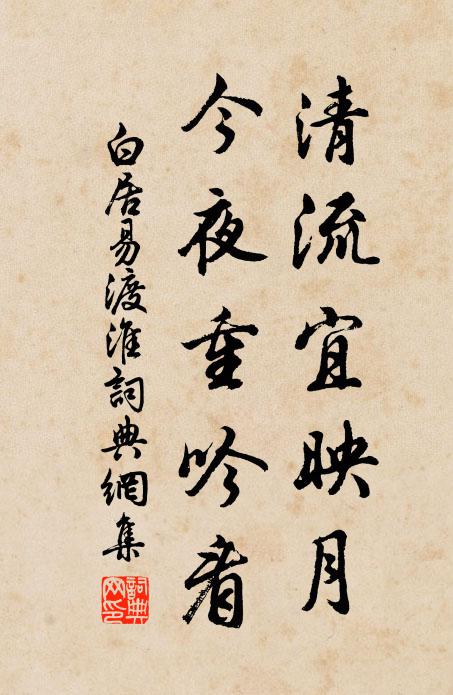 清流宜映月
今夜重吟看
白居易渡淮詞典網集
詞典
网印